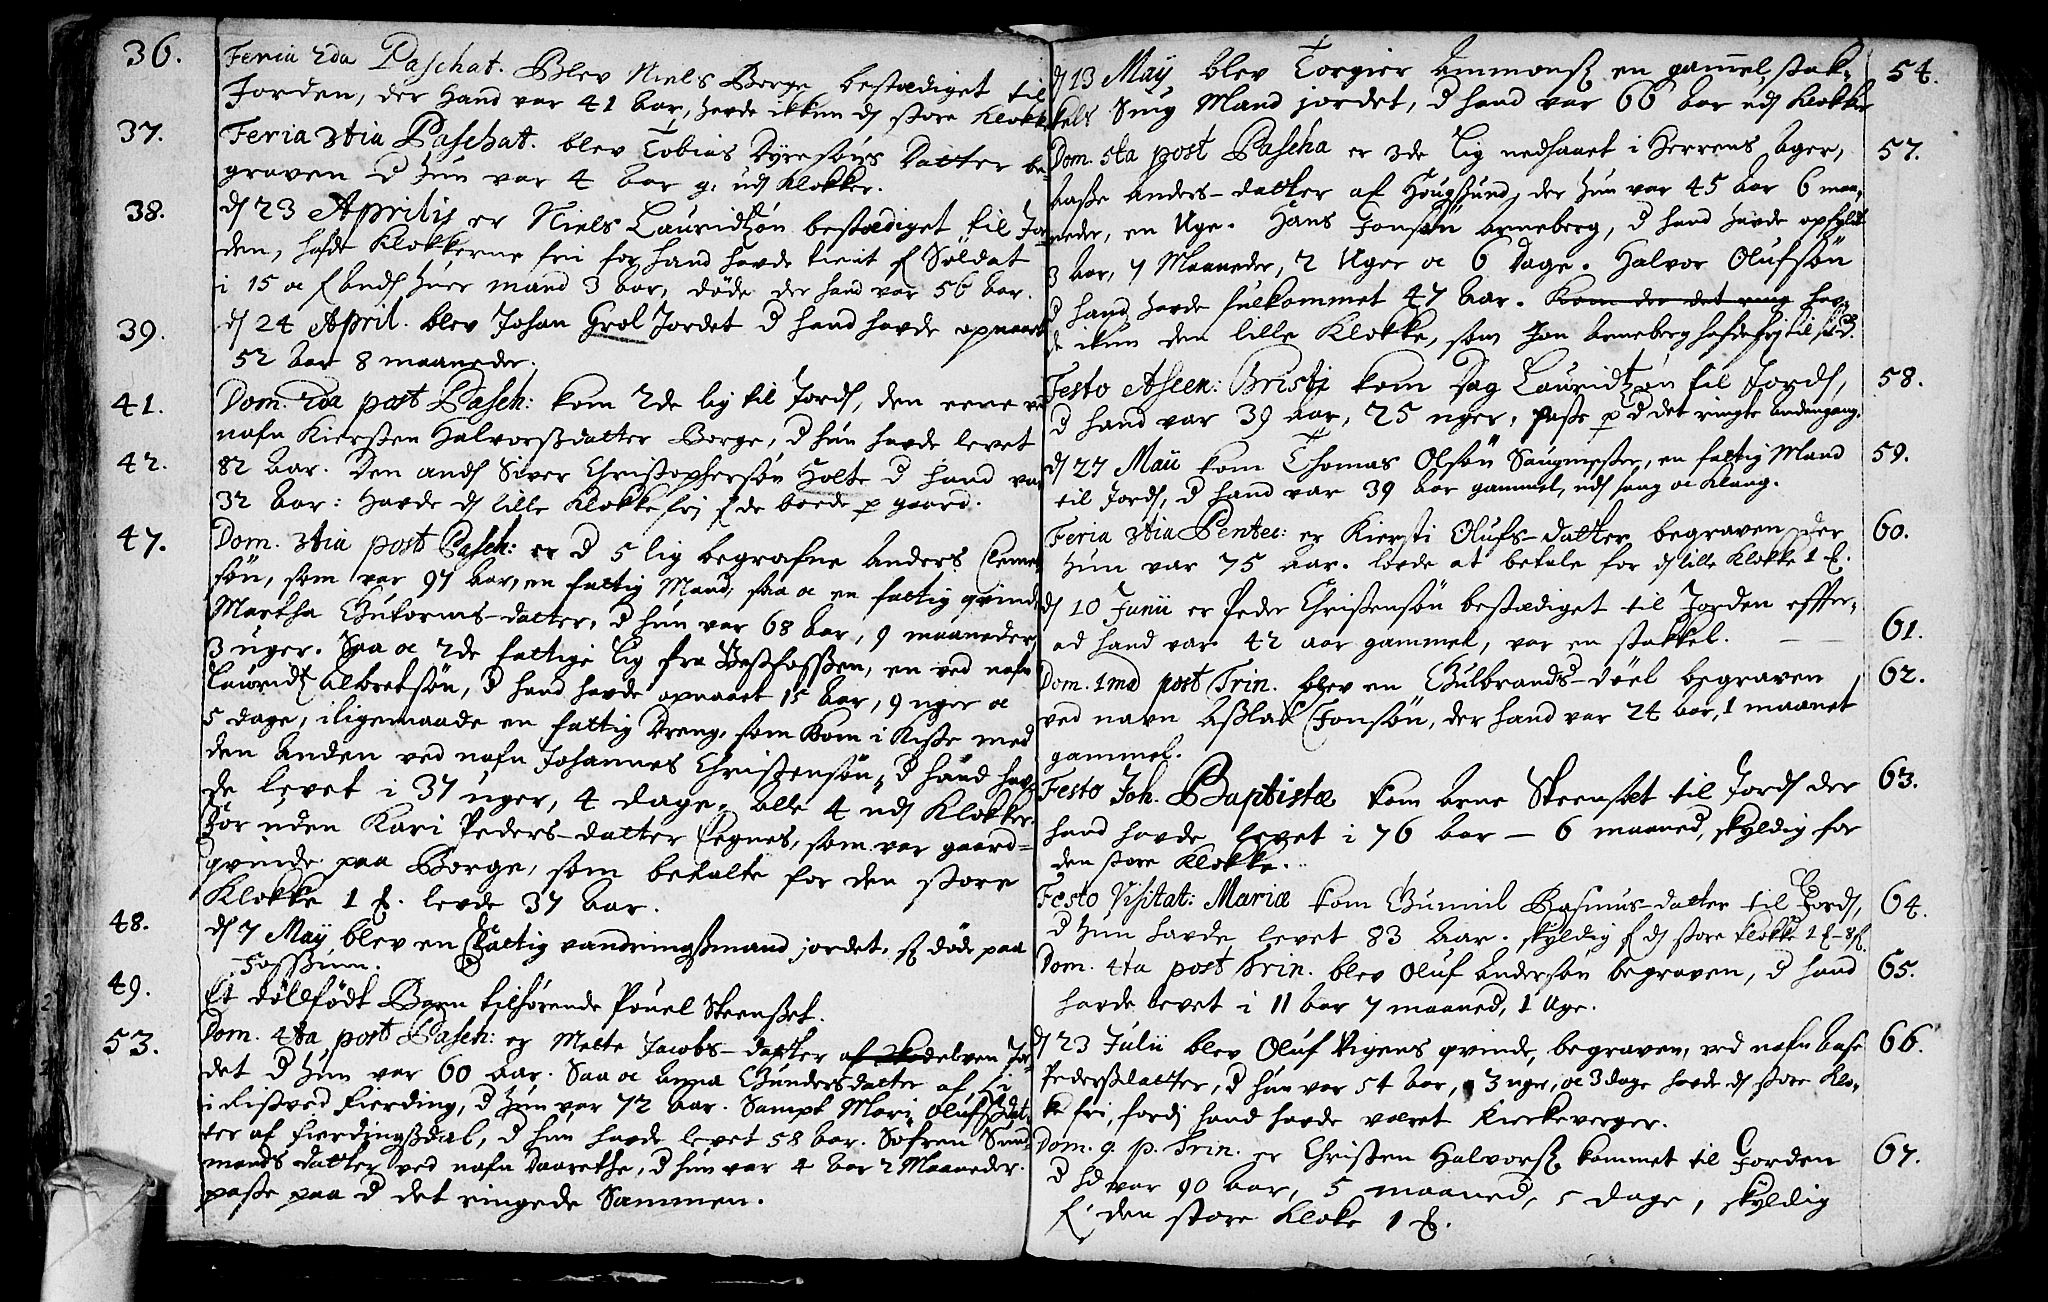 36. Feria 2da Paschat. Blev Niels Borge bestædiget til
Jorden, der Hand var 41 Aar, hevde ikkun dj store Klokke
37. Feria 3tia Paschat. blev Tobias Dyresøns Datter be-
graven d hun var 4 Aar g. udj Klokker.
38. dj 23 Aprilis er Niels Lauridtzøn bestædiget til Jor-
den, hafde Klokkerne frii for hand havde tient Søldat
i 15 oc huer mand 3 Aar, døde der hand var 56 Aar.
39. dj 24 April. blev Johan Grøl Jordet d hand havde opnaaet
52 Aar 8 maaneder.
41. Dom. 2da post Pasch: kom 2de lig til Jordj, den eene ved
nafn Kiersten Halvorsdatter Borge, d hun havde levet
42. 82 Aar. Den andj Siver Christophersøn Holte d hand var
32 Aar: Havde dj lille Klokke frj de boede p gaard.
47. Dom. 3tia post Pasch: er d 5 lig begrafne Anders Clemet
søn, som var 97 Aar, en fattig Mand, saa oc en fattig qvinde
Martha Gutorms-datter, d hun var 68 Aar, 9 maaneder,
3 uger. Saa oc 2de fattige lig fra Vestfossen, en ved nafn
Lauridtz Albretsøn, d hand havde opnaaet 15 Aar, 9 uger oc
5 dage, iligemaade en fattig Dreng, som kom i Kiste med
den Anden ved nafn Johannes Christensøn, d hand haf-
de levet i 37 uger, 4 dage. Alle 4 udj Klokker
Før uden Kari Peders-datter Tegnes, som var gaard-
qvinde paa Borge, som betalte for den store
Klokke 1 levde 37 Aar.
48. dj 7 Maij blev en Fattig vandringsmand jordet, døde paa
Fossum.
49. Et dødfødt Barn tilhørende Povel Steenset.
53. Dom. 4ta post Pasch: er Mette Jacobs-datter af Jor-
det d hun var 60 aar. Saa oc Anna Gundersdatter af Li
i Fisked Fierding, d hun var 72 Aar. Sampt Mari Olufsdat-
ter af Fierdingsdal, d hun havde levet 58 Aar. Søfren Sund-
mands datter ved nafn Daarethe, d hun var 4 Aar 2 Maaneder.
paste paa d det ringede Sammen.
54. dj 13 Maij blev Torgier Ammonsz en gammel stak-
kels Mand jordet, d hand var 66 Aar udj Klokker
57. Dom. 5ta post Pascha er 3de Lig nedsaaet i Herrens Ager,
Aaste Anders-datter af Hougsund, der hun var 45 Aar 6 maa-
neder, en Uge. Hans Jonsøn Arneberg, d hand havde opfyldt
3 Aar, 7 Maaneder, 2 Uger oc 6 Dage. Halvor Olufsøn
d hand havde fulkommet 47 Aar. Kom der det ring hav-
de ikun den lille Klokke, som Jon Arneberg hafde frj til
58. Festo Ascen: Christi kom Dag Lauridtzøn til Jordj,
d hand var 39 Aar, 25 uger, paste p d det ringte andengang.
59. dj 27 Maii kom Thomas Olsøn Saugmester, en fattig Mand
til Jordj, d hand var 39 Aar gammel, udj sang oc Klang.
60. Feria 3tia Pentec: er Kiersti Olufs-datter begraven der
hun var 75 Aar. lovde at betale for dj lille Klokke 1
61. dj 10 Junii er Peder Christensøn bestædiget til Jorden effter,
ad hand var 42 aar gammel, var en stakkel.
62. Dom. 1ma post Trin. blev en Gulbrands-døel begraven
ved navn Aslak Jonsøn, der hand var 24 Aar, 1 maanet
gammel.
63. Festo Joh. Baptistæ kom Arne Steenset til Jordj der
hand havde levet i 76 Aar - 6 maaned, skyldig for
den store Klokke.
64. Festo Visitat: Mariæ kom Gunnil Rasmus-datter til Jordj,
d hun havde levet 83 Aar. skyldig dj store klokke
65. Dom. 4ta post Trin. blev Oluf Andersøn begraven, d hand
havde levet i 11 Aar 7 maaned, 1 Uge.
66. dj 23 Julii blev Oluf Vigens qvinde, begraven, ved nafn Aase
Pedersdatter, d hun var 54 Aar, 3 uger, oc 3 dage havde dj store Klo-
ke fri, fordj hand havde været Kierkeverger.
67. Dom. 9. p. Trin. er Christen Halvorsz kommet til Jorden
d hd war 90 Aar, 5 maaned, 5 dage, skyldig
f. den store Kloke 1